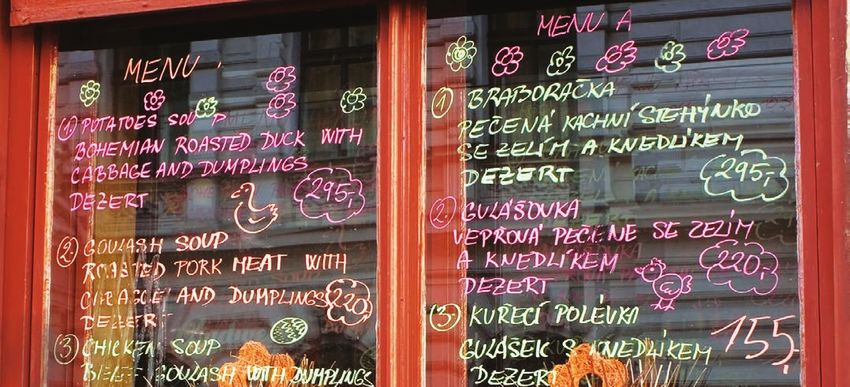 MENU
① POTATOES SOUP
BOHEMIAN ROASTED DUCK WITH
CABBAGE AND DUMPLINGS
DEZERT
295,-
② GOULASH SOUP
ROASTED PORK MEAT WITH
CABBAGE AND DUMPLINGS
DEZERT
220,-
③ CHICKEN SOUP
BEEF GOULASH WITH DUMPLINGS
MENU A
① BRABORAČKA
PEČENÁ KACHNÍ STEHÝNKO
SE ZELÍM A KNEDLÍKEM
DEZERT
295,-
② GULÁŠOVKA
VEPROVÁ PEČENE SE ZELÍM
A KNEDLÍKEM
DEZERT
220,-
③ KUŘECÍ POLÉVKA
GULÁŠEK S KNEDLÍKEM
DEZERT
155,